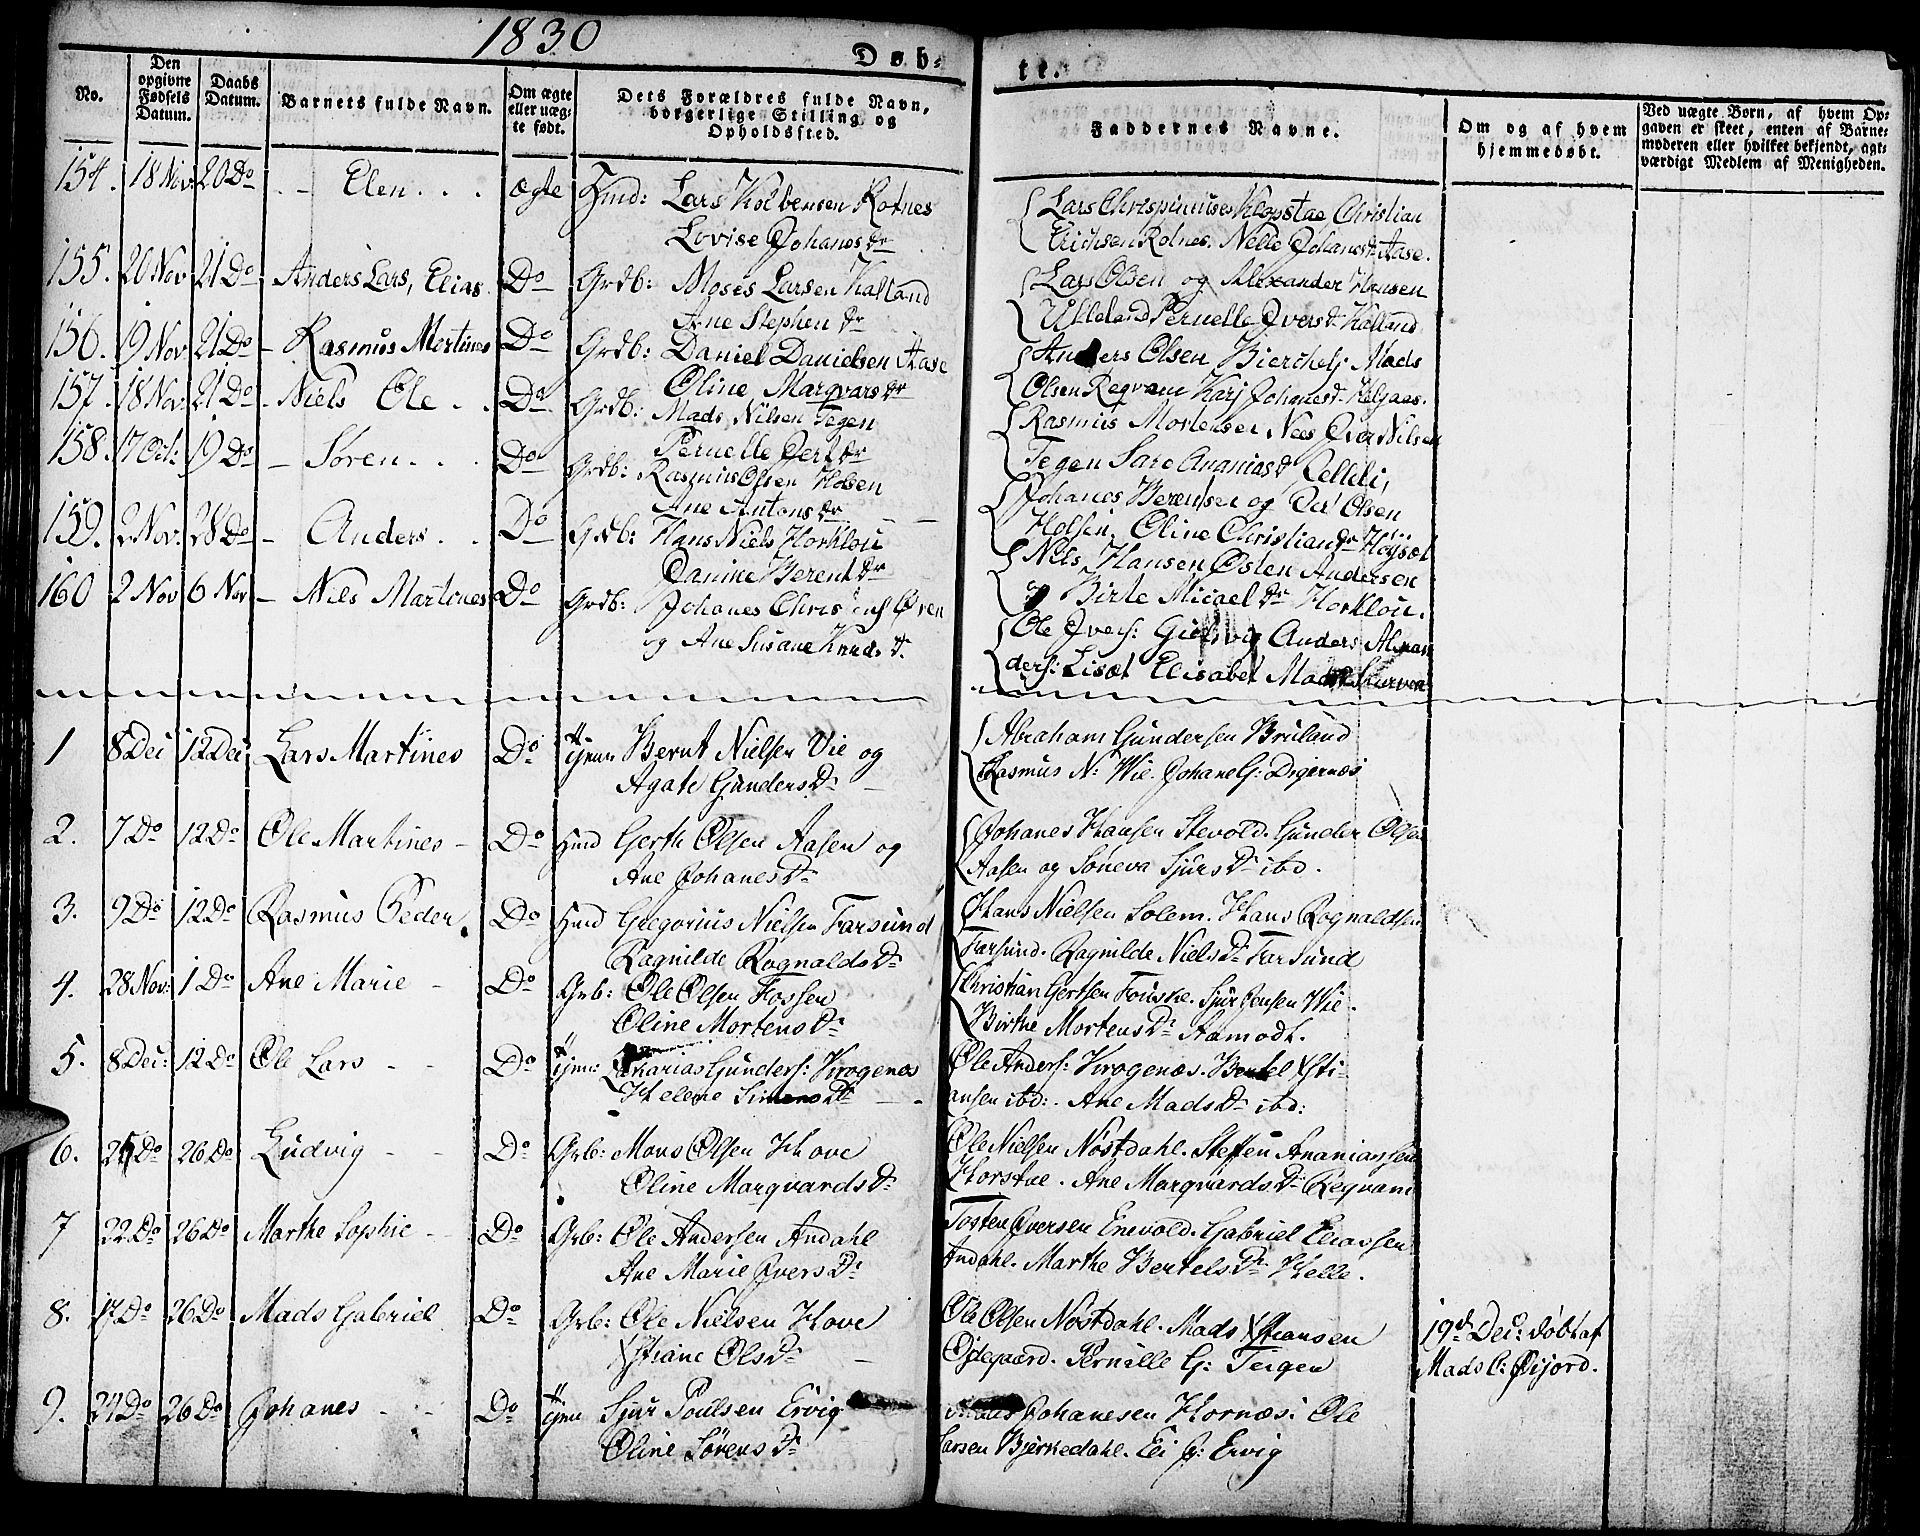 1830
Døb-
te.
No.
Den opgivne Fødsels Datum.
Daabs Datum.
Barnets fulde Navn.
Om ægte eller uægte født.
Dets Forældres fulde Navn, borgerlige Stilling og Opholdssted.
Faddernes Navne.
Om og af hvem hjemmedøbt.
Ved uægte Børn, af hvem Opgaven er skeet, enten af Barnemoderen eller hvilket bekjendt, agtværdigt Medlem af Menigheden.
154. 18 Nov 20 Do - - Elen . . . ægte Hmd: Lars Kolbensen Rotnes
Lovise Johanes Dr
Lars Christian
Erichsen Rotnes. Nelle Johanes Dr Aase.
155. 20 Nov 21 Do - Anders Lars, Elias Do Grdb: Moses Larsen Kalland
Ane Stephen Dr
Lars Olsen og Alexander Hansen
Ulleland Pernelle Ivers Dr Kalland
156. 19 Nov 21 Do - Rasmus Martines Do Grdb: Daniel Danielsen Aase
Oline Marqvars Dr
Anders Olsen Mads
Olsen Regvam Kari Johanes Dr
157. 18 Nov 21 Do - Niels Ole . . Do Grdb: Mads Nilsen Tegen
Pernelle Dr
Rasmus Mortensen Iver Nilsen
Tegen Sare Ananias Dr
158. 17 Oct: 19 Do - Søren . . . Do Grdb: Rasmus Olsen Holsen
Ane Antons Dr
Johanes Berentsen og Olsen
Holsen, Oline Christian Dr
159. 2 Nov. 28 Do - Anders . . Do Grdb: Hans Niels Horklou
Danine Berent Dr
Nils Hansen Østen Andersen
og Birte Micael Dr Horklou.
160 2 Nov 6 Nov - Nils Martines Do Grdb: Johanes Øren
og Ane Susane Knuds Dr.
Ole Ivers: Anders
ders: Lisæt Elisabet
1 8 Dec 12 Dec Lars Martines Do Tjen: Bernt Nielsen Vie og
Agate Gunders Dr
Abraham Gundersen Bruland
Rasmus N: Wie. Johane G: Digernæs
2. 7 Do 12 Do Ole Martines - Do Hmd Gerth Olsen Aasen og
Ane Johanes Dr
Johanes Hansen Stevold. Gunder Olsen
Aasen og Søneva Sjurs Dr ibd.
3. 9 Do 12 Do Rasmus Peder. Do Hmd Gregorius Nielsen Farsund
Ragnilde Rognalds Dr
Hans Nielsen Solem. Hans Rognaldsen
Farsund. Ragnilde Niels Dr Farsund
4. 28 Nov: 1 Do Ane Marie - Do Grb: Ole Olsen Fossen
Oline Mortens Dr
Christian Gertsen Fouske. Sjur Jensen Wie.
Birthe Mortens Dr Hamodt.
5. 8 Dec: 12 Do Ole Lars - - Do Tjen: Zakarias Gunders: Krogenæs
Helene Simens Dr
Ole Anders: Krogenæs. Bertel Xsti-
ansen ibd:. Ane Mads Dr ibd:
6. 25 Do 26 Do Ludvig - - Do Grb: Mons Olsen Hove
Oline Marqvards Dr
Ole Nielsen Nøstdahl. Steffen Ananiassen
Horstue. Ane Marqvards Dr Regvam
7 22 Do 26 Do Marthe Sophie - - Do Grb: Ole Andersen Andahl
Ane Marie Ivers Dr
Tosten Iversen Enevold. Gabriel Eliassen
Andahl. Marthe Bertels Dr Helle.
8. 17 Do 26 Do Mads Gabriel Do Grb: Ole Nielsen Hove
Xstiane Ols Dr
Ole Olsen Nøstdahl. Mads Xstiansen
Ødegaard. Pernille G: Teigen
19de Dec: døbt af
Mads C: Øijord.
9. 24 Do 26 Do Johanes - - Do Tjen Sjur Poulsen Ervig
Oline Sørens Dr
Johanesen Hornæs: Ole
Larsen Bjerkedahl. Eli J: Ervig